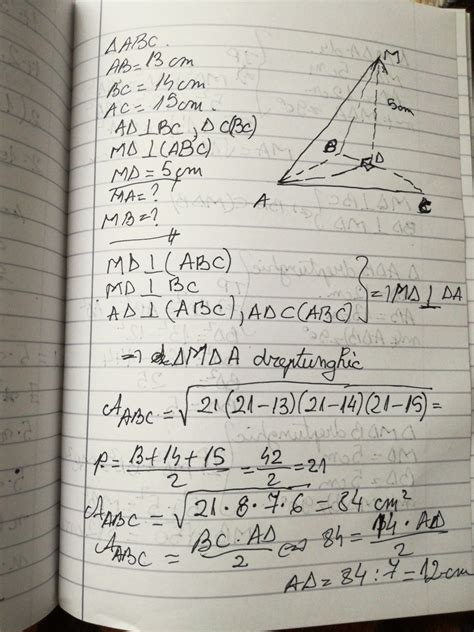 ΔABC.
AB = 13 cm
BC = 14 cm
AC = 15 cm.
AD ⊥ BC, D∈(BC)
MD ⊥ (ABC)
MD = 5 cm
MA = ?
MB = ?
M
5cm
B
D
A
C
MD ⊥ (ABC)
MD ⊥ BC
AD ⊥ (ABC), AD⊂(ABC)
=> MD ⊥ DA
=> ΔMDA dreptunghic
A_ABC = √21(21-13)(21-14)(21-15) =
P = 13+14+15/2 = 42/2 = 21
A_ABC = √21·8·7·6 = 84 cm²
A_ABC = BC·AD/2 <=> 84 = 14·AD/2
AD = 84:7 = 12 cm